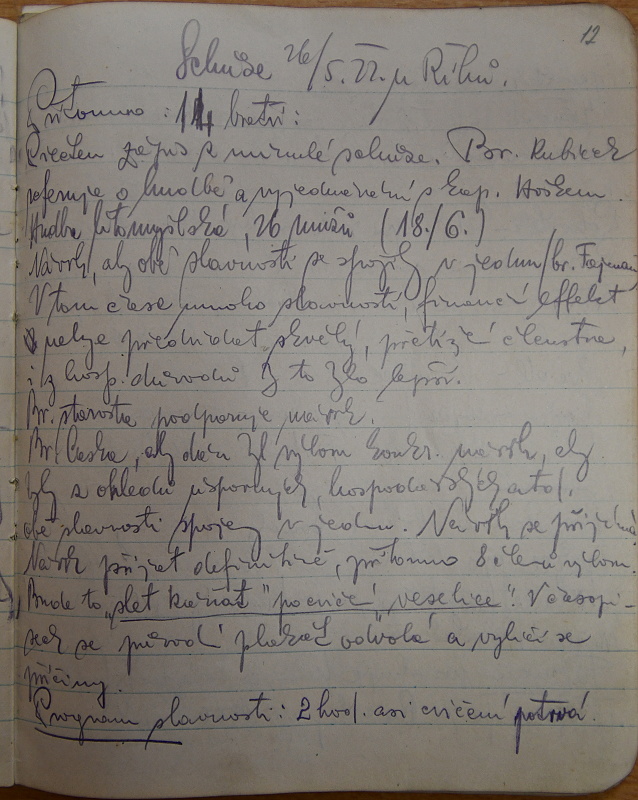 12
Schůze 26/5. 22. u Říhů.
Přítomno : 14 bratří :
Přečten zápis z minulé schůze. Br. Kubíček
referuje o hudbě a vyjednávání s kap.
Hudba litomyšlská, 26 mužů (18./6.)
Návrh, aby obě slavnosti se spojily v jednu/br. Fajman
V tom čase mnoho slavností, finanční effekt
nelze předvídat skvělý, přetíž. členstva,
i z hosp. důvodů by to bylo lepší.
Br. starosta podporuje návrh.
Br. Česka, aby dán byl výborn konkr. návrh, aby
byly z ohledů úsporných, hospodářských atd.
obě slavnosti spojeny v jednu. Návrh se přijímá
Návrh přijat definitivně, přítomno 8 členů výborn.
Bude to „slet káňat" „pocvič." „veselice". V časopi-
sech se původní plakát odvolá a vylíčí se
příčiny.
Program slavnosti : 2 hod. asi cvičení potrvá.